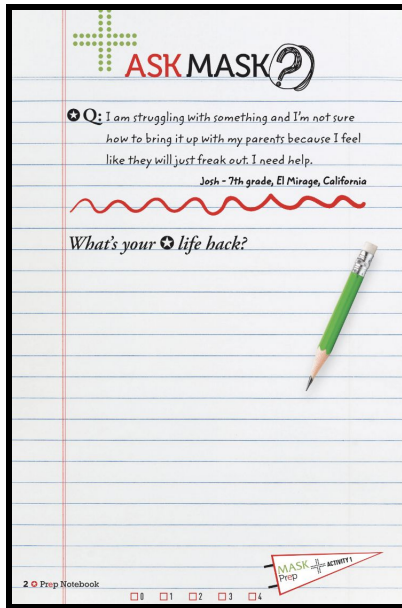 ASK MASK?
Q: I am struggling with something and I'm not sure
how to bring it up with my parents because I feel
like they will just freak out. I need help.
Josh - 7th grade, El Mirage, California
What's your life hack?
MASK Prep ACTIVITY 1
2 Prep Notebook
0 1 2 3 4